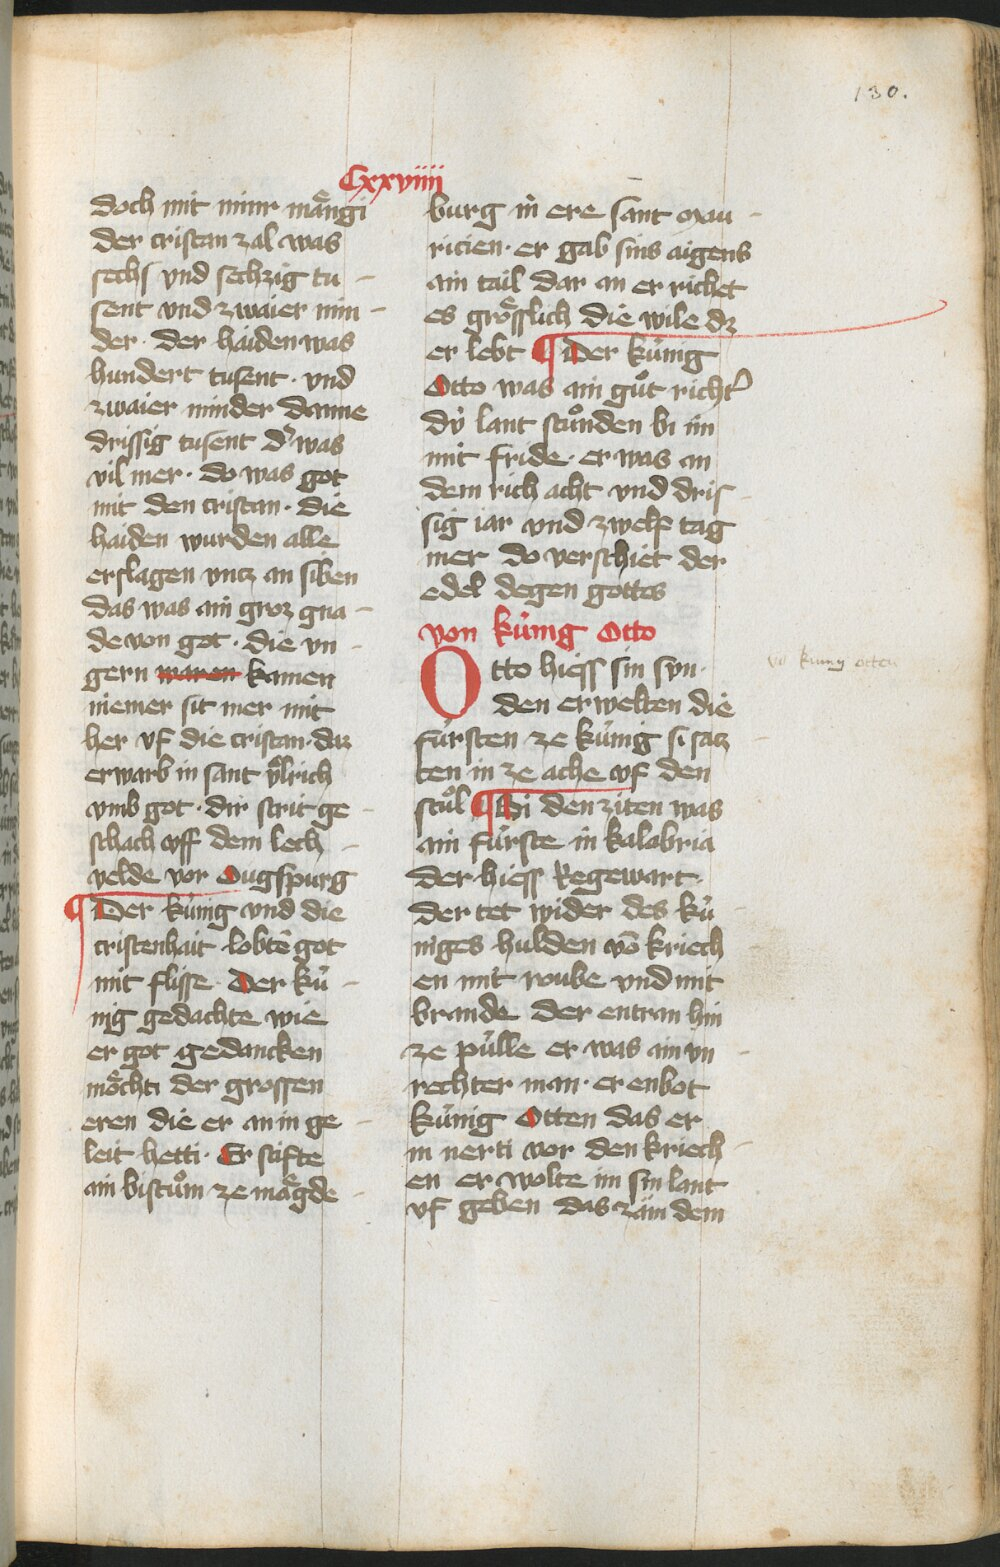 130.
Cxxviiii
doch mit minr mängi
der cristan zal was
sechs vnd sechzig tu
sent vnd zwaier min
der · der haiden was
hundert tusent · vnd
zwaier minder danne
drissig tusent dˀ was
vil mer · do was got
mit den cristan · die
haiden wurden alle
erslagen vntz an siben
das was ain groz gna
de von got · die vn
gern waren kamen
niemer sit mer mit
her vf die cristan · daz
erwarb in sant vͦlrich
vmb got · dir strit ge
schach vff dem lech
velde vor Ougspurg
¶ Der kúnig vnd die
cristenhait lobtē got
mit flisse · Der kú
nig gedachte wie
er got gedancken
möchti der grossen
eren die er an in ge
leit hetti · Er stifte
ain bistuͦm ze mägde
burg in ere sant mau
ricien · er gab sins aigens
ain tail dar an er richet
es grösslich die wile dz
er lebt ¶ Der kúnig
Otto was ain guͦt richtˀ
dú lant stuͦnden bi im
mit fride · er was an
dem rich acht vnd dris
sig iar vnd zwelf tag
mer do verschiet der
edel degen gottes
von kúnig Otto
Otto hiess sin sun ·
den erwelten die
fúrsten ze kúnig si satz
ten in ze ache vf den
stuͦl ¶ Bi den ziten was
ain fúrste in kalabria
der hiess Regewart ·
der tet wider des kú
niges hulden vō kriech
en mit roube vnd mit
brande der entran hin
ze púlle er was ain vn
rechter man · er enbot
kúnig Otten das er
in nerti vor den kriech
en er wolte im sin lant
vf geben das zäm dem
kunig otten